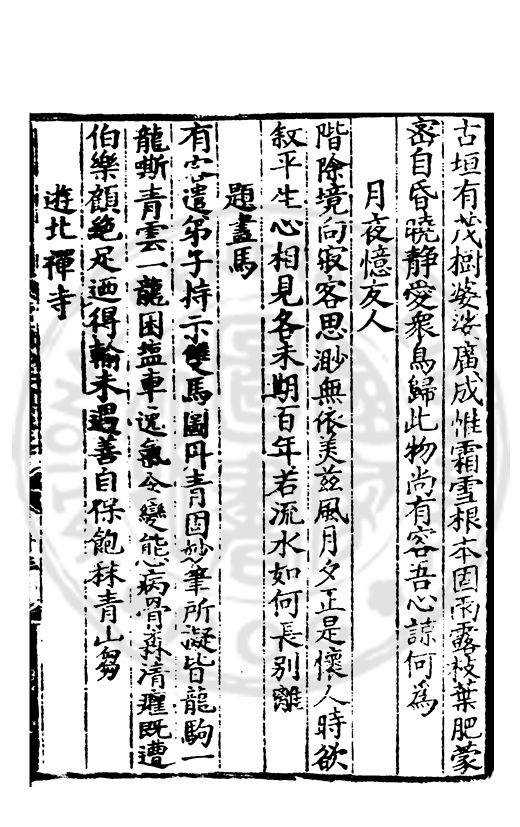 古垣有茂樹婆娑廣成帷霜雪根本固雨露枝葉肥蒙
密自昏曉静愛衆鳥歸此物尚有容吾心諒何為
月夜憶友人
階除境向寂客思渺無依美兹風月夕正是懷人時欲
叙平生心相見各未期百年若流水如何長別離
題畫馬
有客遣弟子持示雙馬圖丹青固妙筆所凝皆龍駒一
龍嘶青雲一龍困塩車逸氣令變態病骨森清癯既遭
伯樂顧絶足迺得輸未遇善自保飽秣青山芻
遊北禪寺